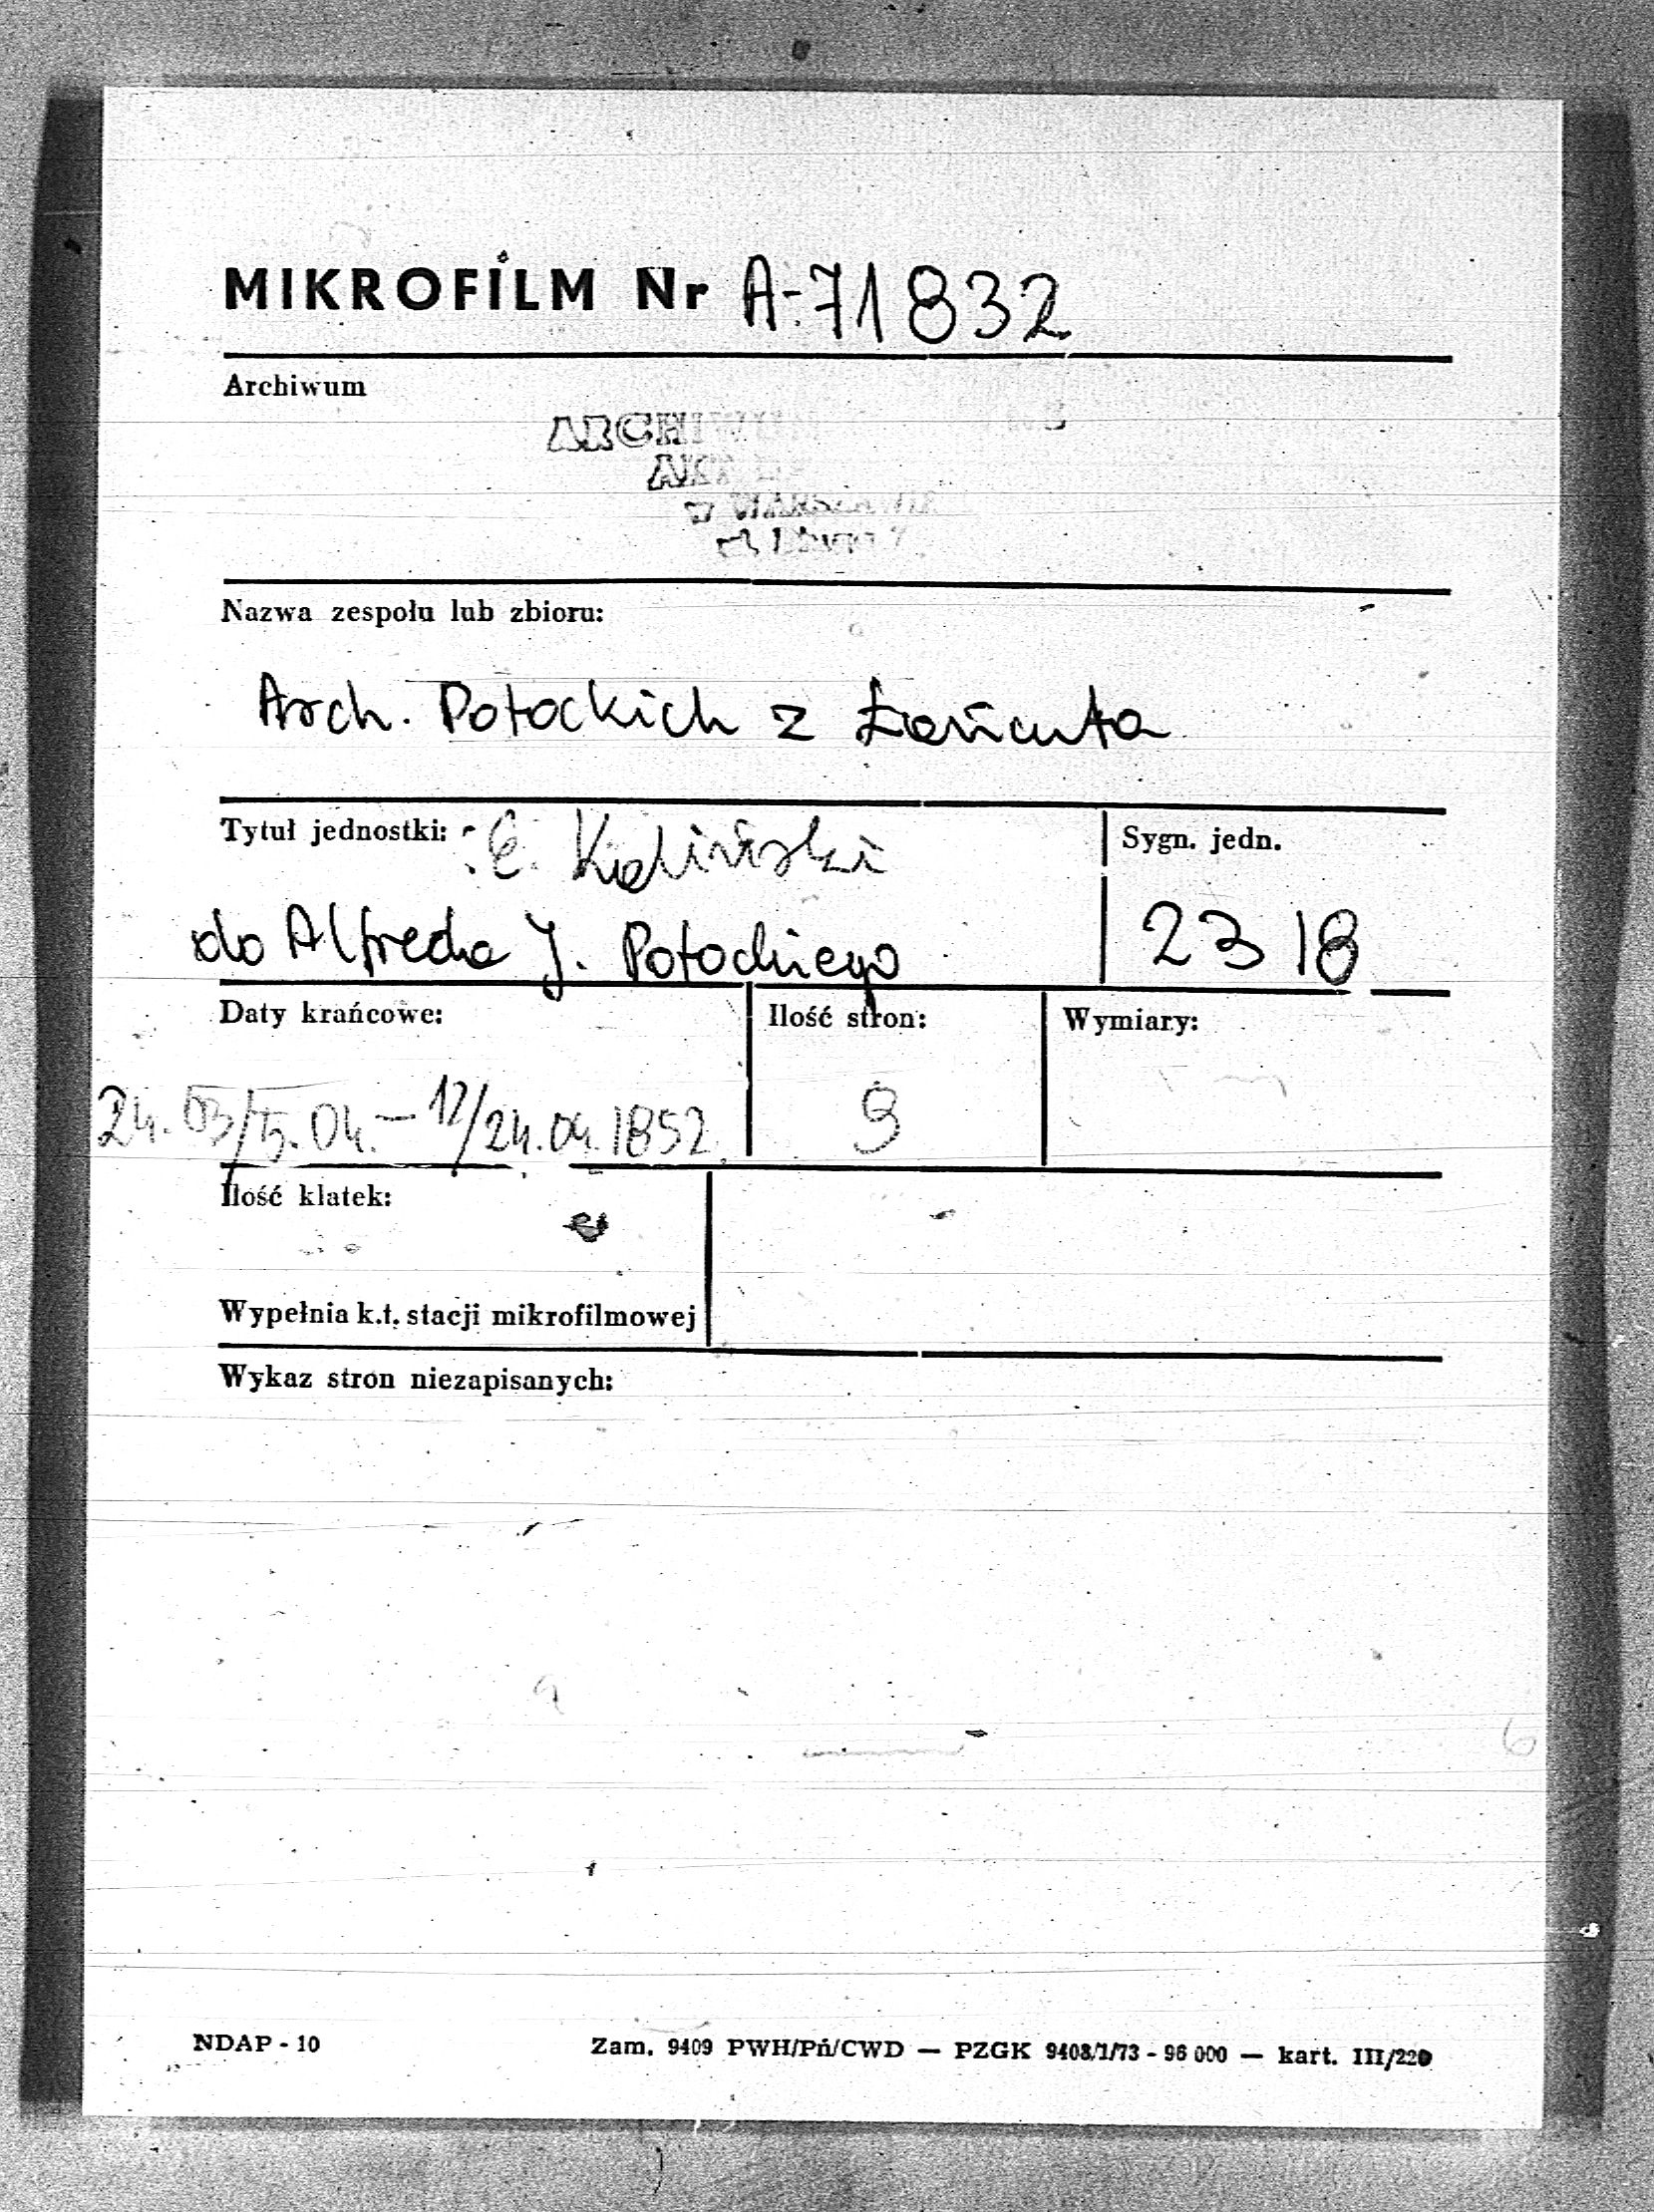 MIKROFILM Nr A-71832
Archiwum
ARCHIWUM
AKT
w WARSZAWIE
Nazwa zespołu lub zbioru:
Arch. Potockich z Łańcuta
Tytuł jednostki: E. Kaliński
Sygn. jedn.
do Alfreda J. Potockiego
2318
Daty krańcowe:
Ilość stron:
Wymiary:
24.03/5.04.-12/24.04.1852
9
Ilość klatek:
Wypełnia k.t. stacji mikrofilmowej
Wykaz stron niezapisanych:
NDAP - 10
Zam. 9409 PWH/Pń/CWD — PZGK 9408/1/73 - 96 000 — kart. III/220